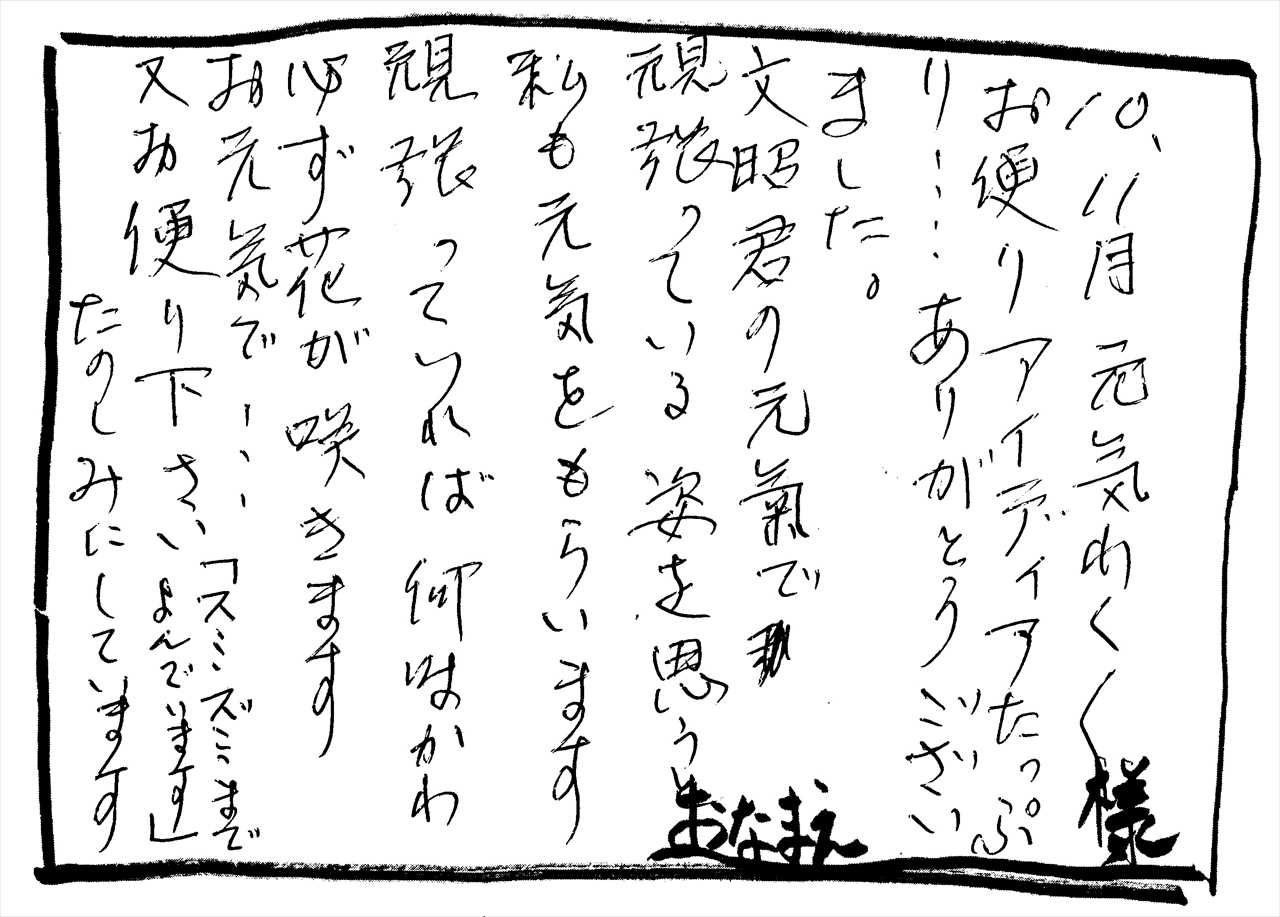 10、11月 元気わく〱様
お便りアイディアたっぷ
り・・・・ありがとうござい
ました。
文昭君の元氣で
頑張っている姿を思うと
おなまえ
私も元気をもらいます
頑張っていれば何時かわ
必ず花が咲きます
お元気で・・・「スミズミまで
よんでいます」
又お便り下さい
たのしみにしています